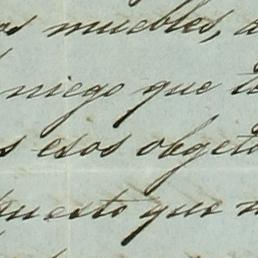 os muebles, a
niego que te
s esos obgeto
puesto que n